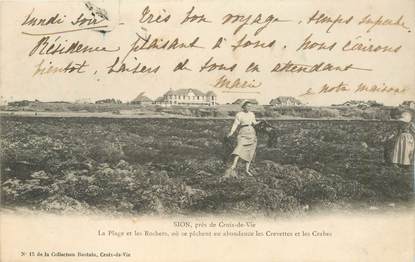 Lundi soir - Très bon voyage, temps superbe
Résidence plaisant à tous. Nous écrirons
bientôt, baisers de tous en attendant
Marie
notre maison
SION, près de Croix-de-Vie
La Plage et les Rochers, où se pêchent en abondance les Crevettes et les Crabes
N° 15 de la Collection Boutain, Croix-de-Vie